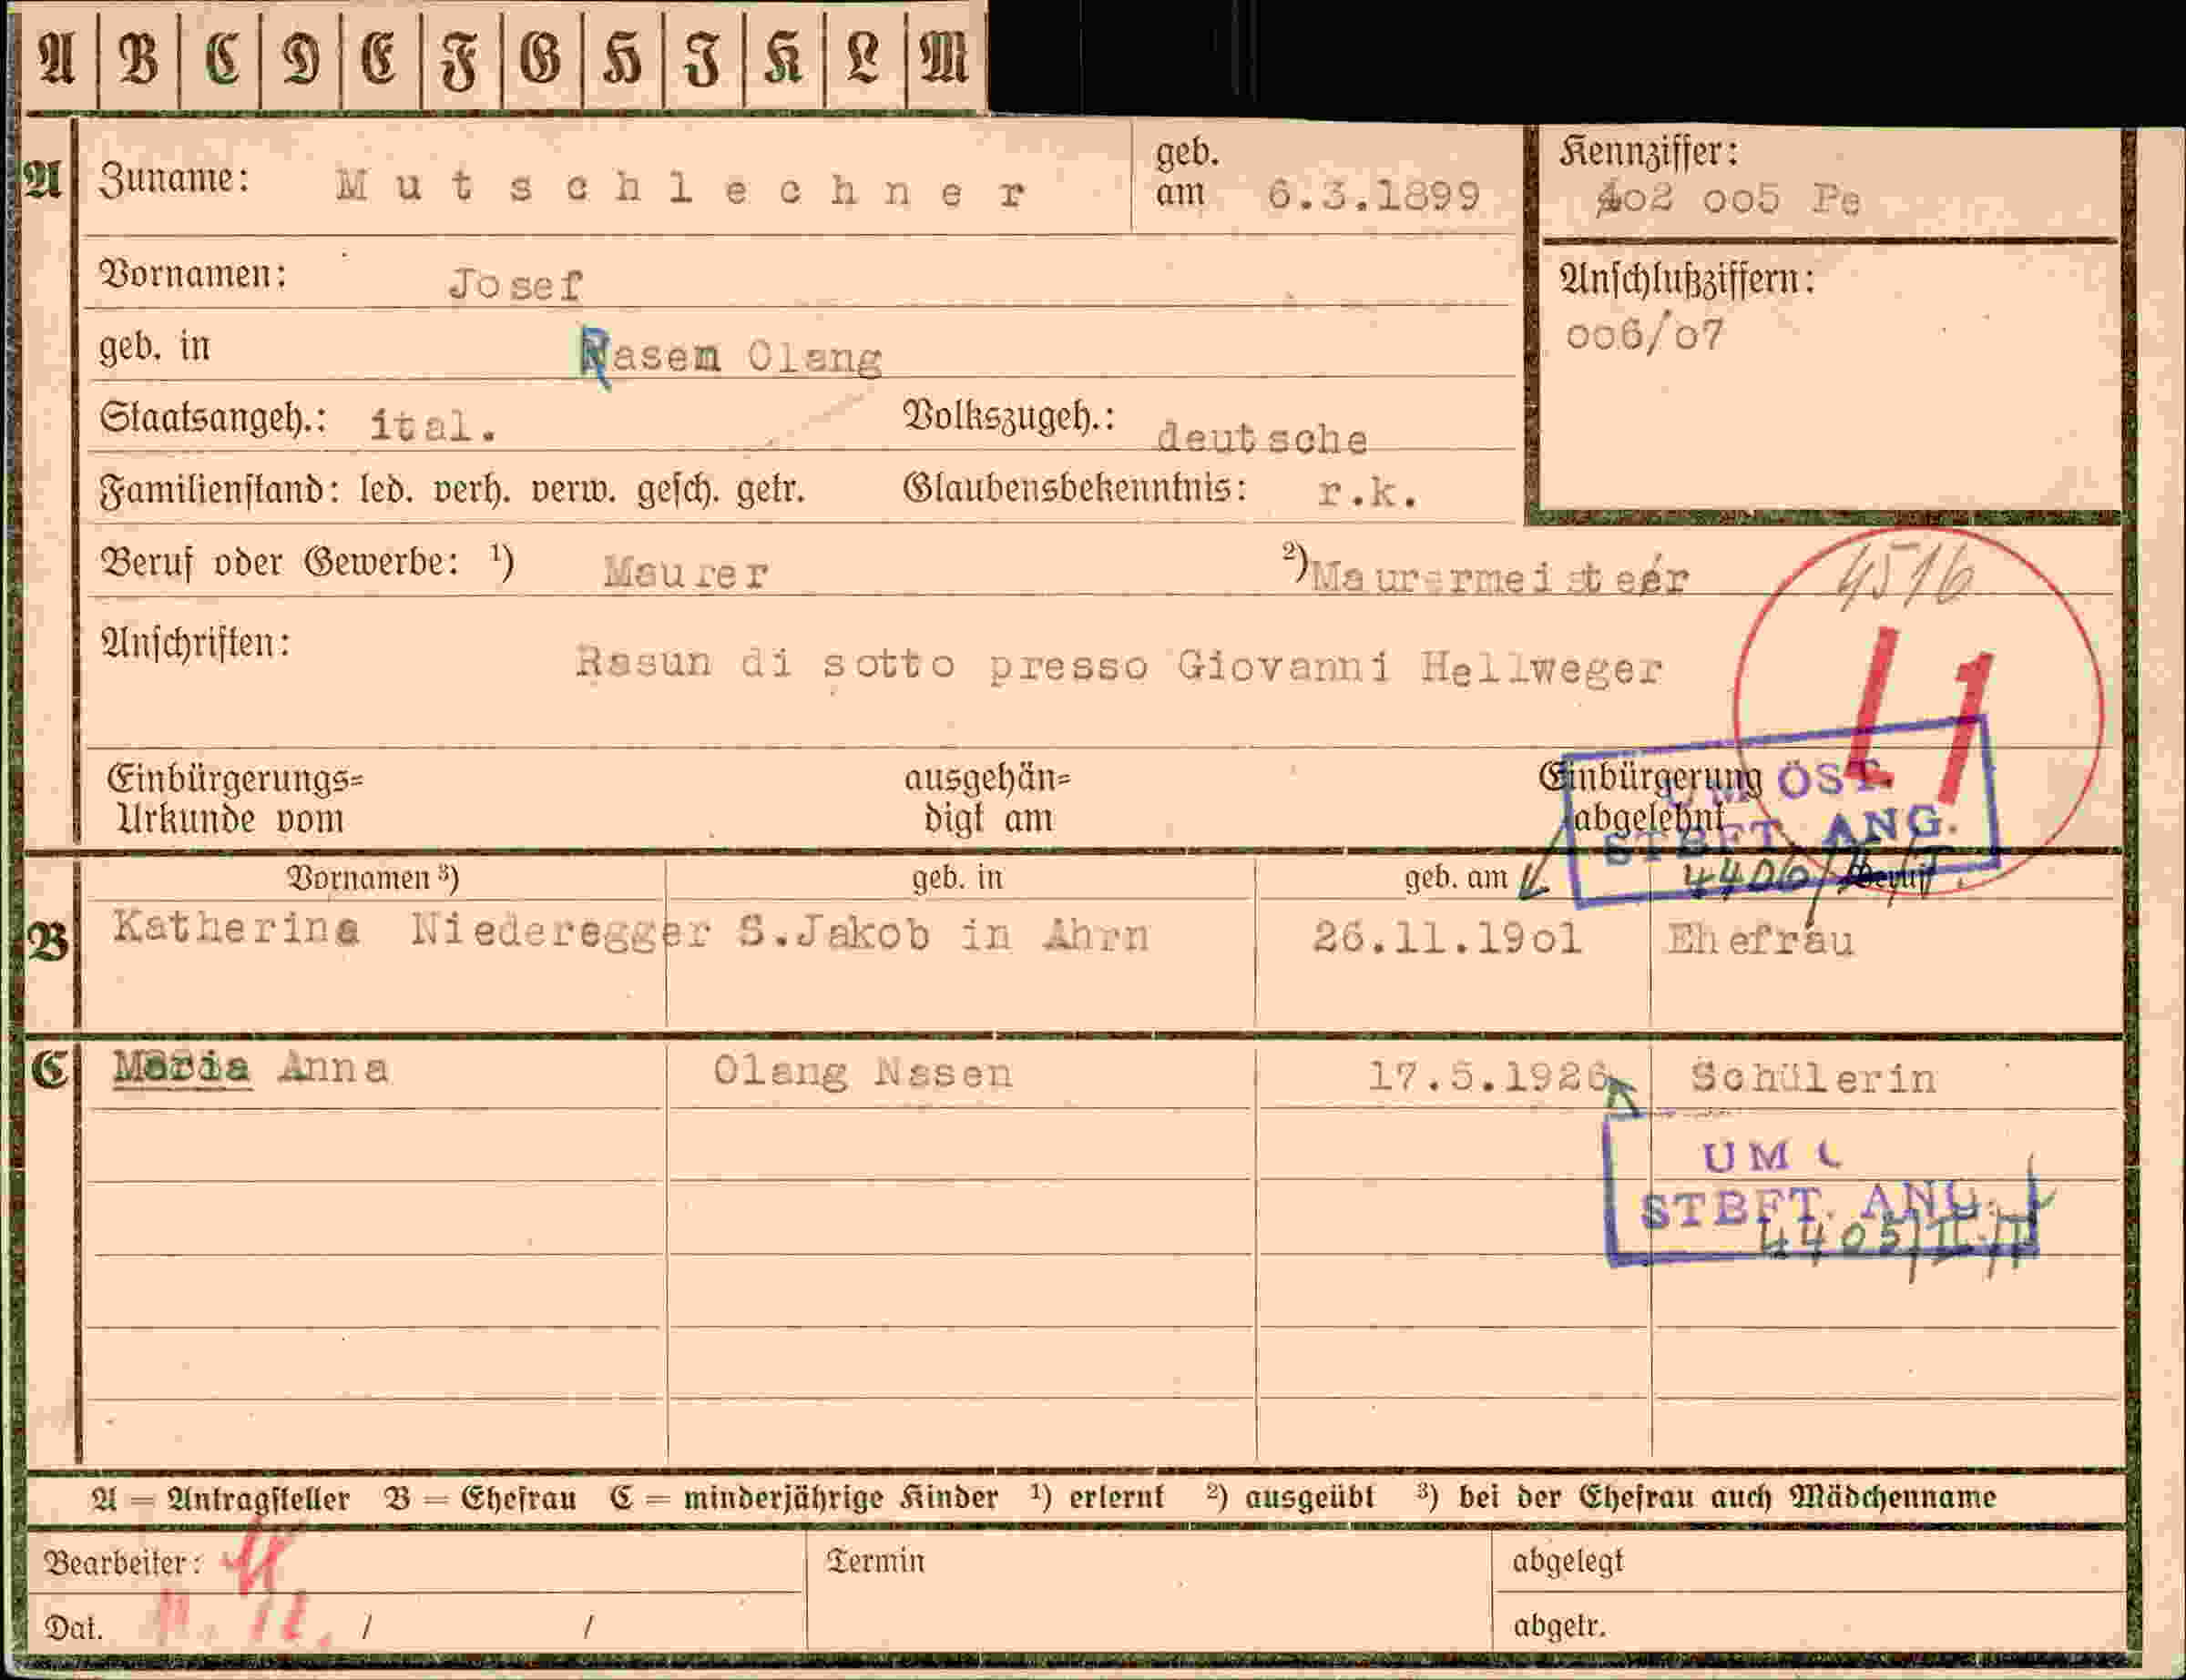 A B C D E F G H I K L M
A Zuname: Mutschlechner geb. am 6.3.1899 Kennziffer: 402 005 Pe
Vornamen: Josef Anschlußziffern:
geb. in Rasen Olang 006/07
Staatsangeh.: ital. Volkszugeh.: deutsche
Familienstand: led. verh. verw. gesch. getr. Glaubensbekenntnis: r.k.
Beruf oder Gewerbe: ¹) Maurer ²) Maurermeister 4516
Anschriften: Rasun di sotto presso Giovanni Hellweger
L1
Einbürgerungs= ausgehän= Einbürgerung
Urkunde vom digt am abgelehnt
UM ÖST.
STBFT. ANG.
4406/
Vornamen ³) geb. in geb. am Beruf
B Katherina Niederegger S.Jakob in Ahrn 26.11.1901 Ehefrau
C Maria Anna Olang Nasen 17.5.1926 Schülerin
UM
STBFT. ANG.
4405/II.
A = Antragsteller B = Ehefrau C = minderjährige Kinder ¹) erlernt ²) ausgeübt ³) bei der Ehefrau auch Mädchenname
Bearbeiter: Termin abgelegt
Dat. 11. 11. / / abgetr.